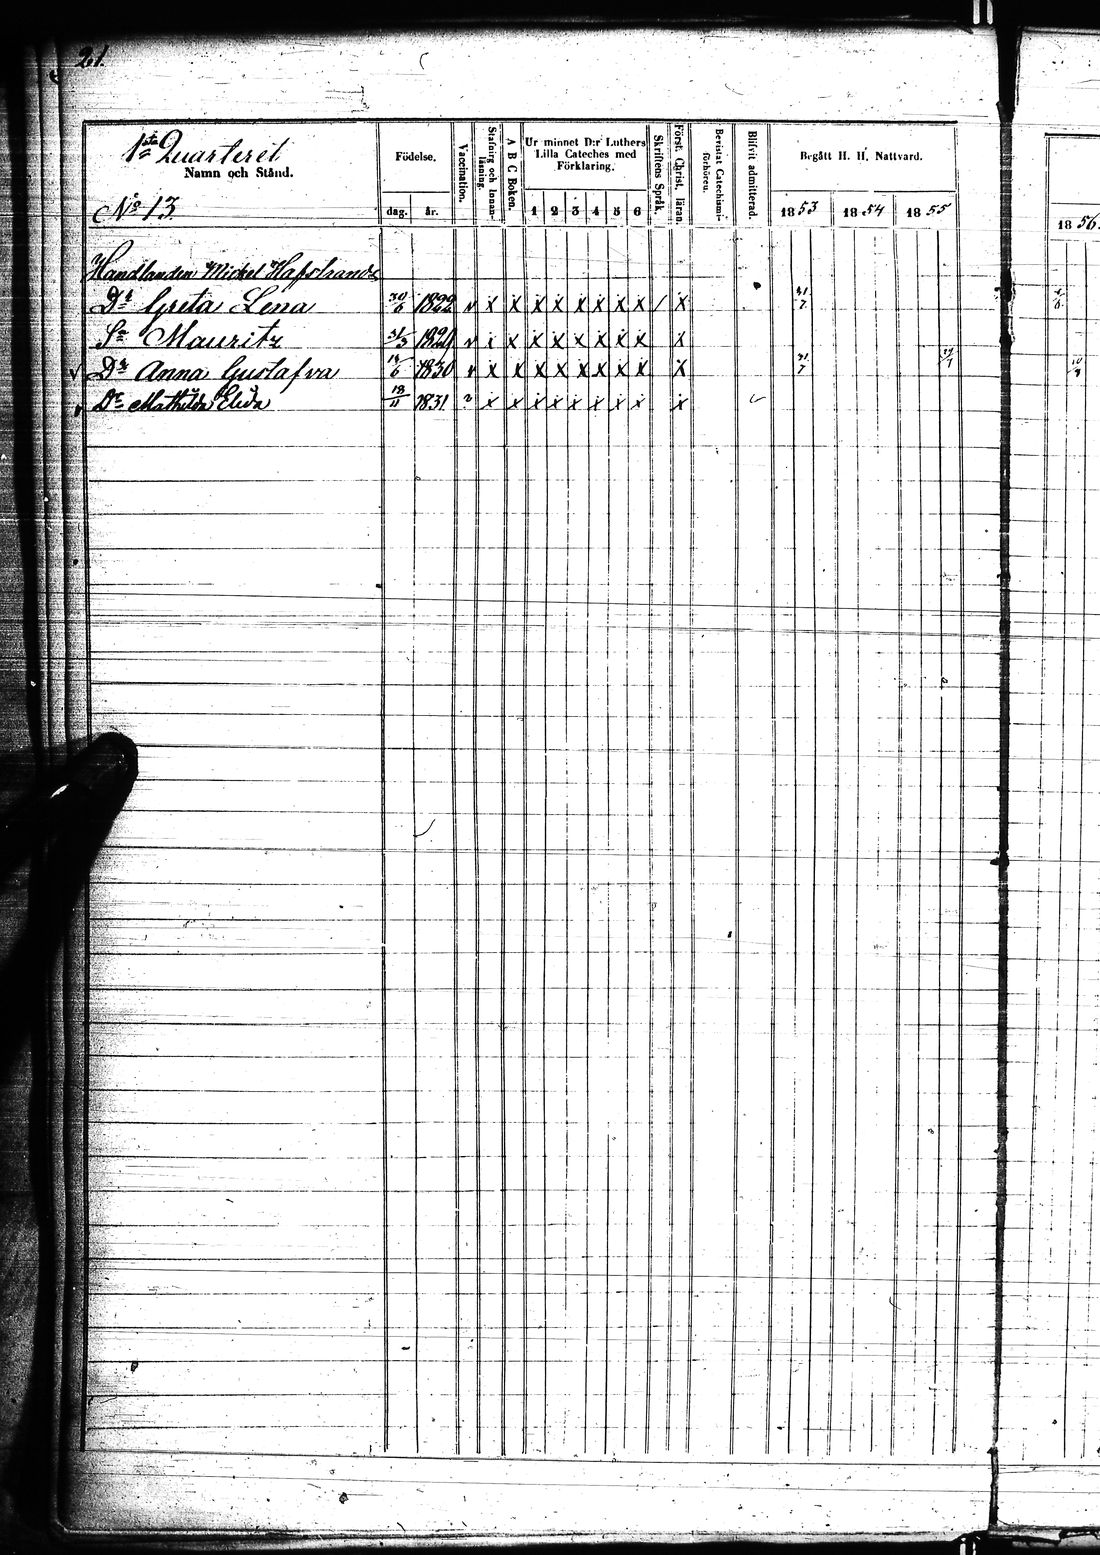 21.
1sta Quarteret
Namn och Stånd.
No 13
Födelse.
dag. år.
Vaccination.
Stafning och Innanläsning.
A B C Boken.
Ur minnet D:r Luthers
Lilla Cateches med
Förklaring.
1 2 3 4 5 6
Skriftens Språk.
Först. Christ. läran.
Bevistat Catechismi-
förhören.
Blifvit admitterad.
Begått H. H. Nattvard.
1853 1854 1855
1856.
Handlanden Mickel
Dr Greta Lena 30/6 1822 v x x x x x x x x / x 31/7
Sn Mauritz 31/3 v x x x x x x x x x
v Dr Anna Gustafva 1830 v x x x x x x x x x 31/7
Dr Mathilda Elida 18/11 1831 ? x x x x x x x x x